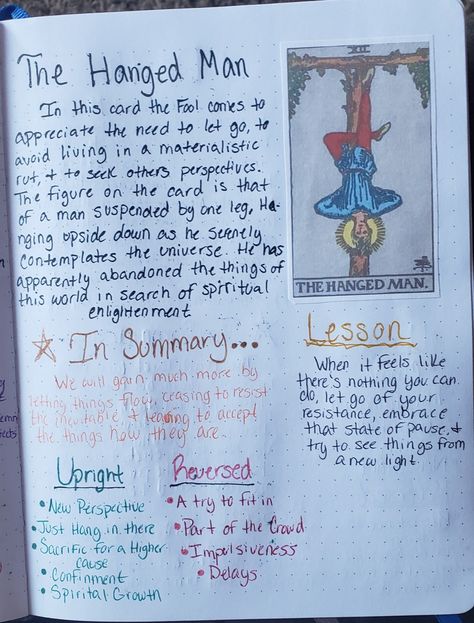 The Hanged Man
In this card the Fool comes to
appreciate the need to let go, to
avoid living in a materialistic
rut, + to seek others perspectives.
The figure on the card is that
of a man suspended by one leg, Ha-
nging upside down as he serenely
contemplates the universe. He has
apparently abandoned the things of
this world in search of spiritual
enlightenment
XII
THE HANGED MAN.
In Summary...
We will gain much more by
letting things flow, ceasing to resist
the inevitable + leading to accept
the things how they are.
Lesson
When it feels like
there's nothing you can
do, let go of your
resistance, embrace
that state of pause, +
try to see things from
a new light.
Upright
• New Perspective
• Just Hang in there
• Sacrific for a Higher
cause
• Confinment
• Spirital Growth
Reversed
• A try to fit in
• Part of the Crowd
• Impulsiveness
• Delays